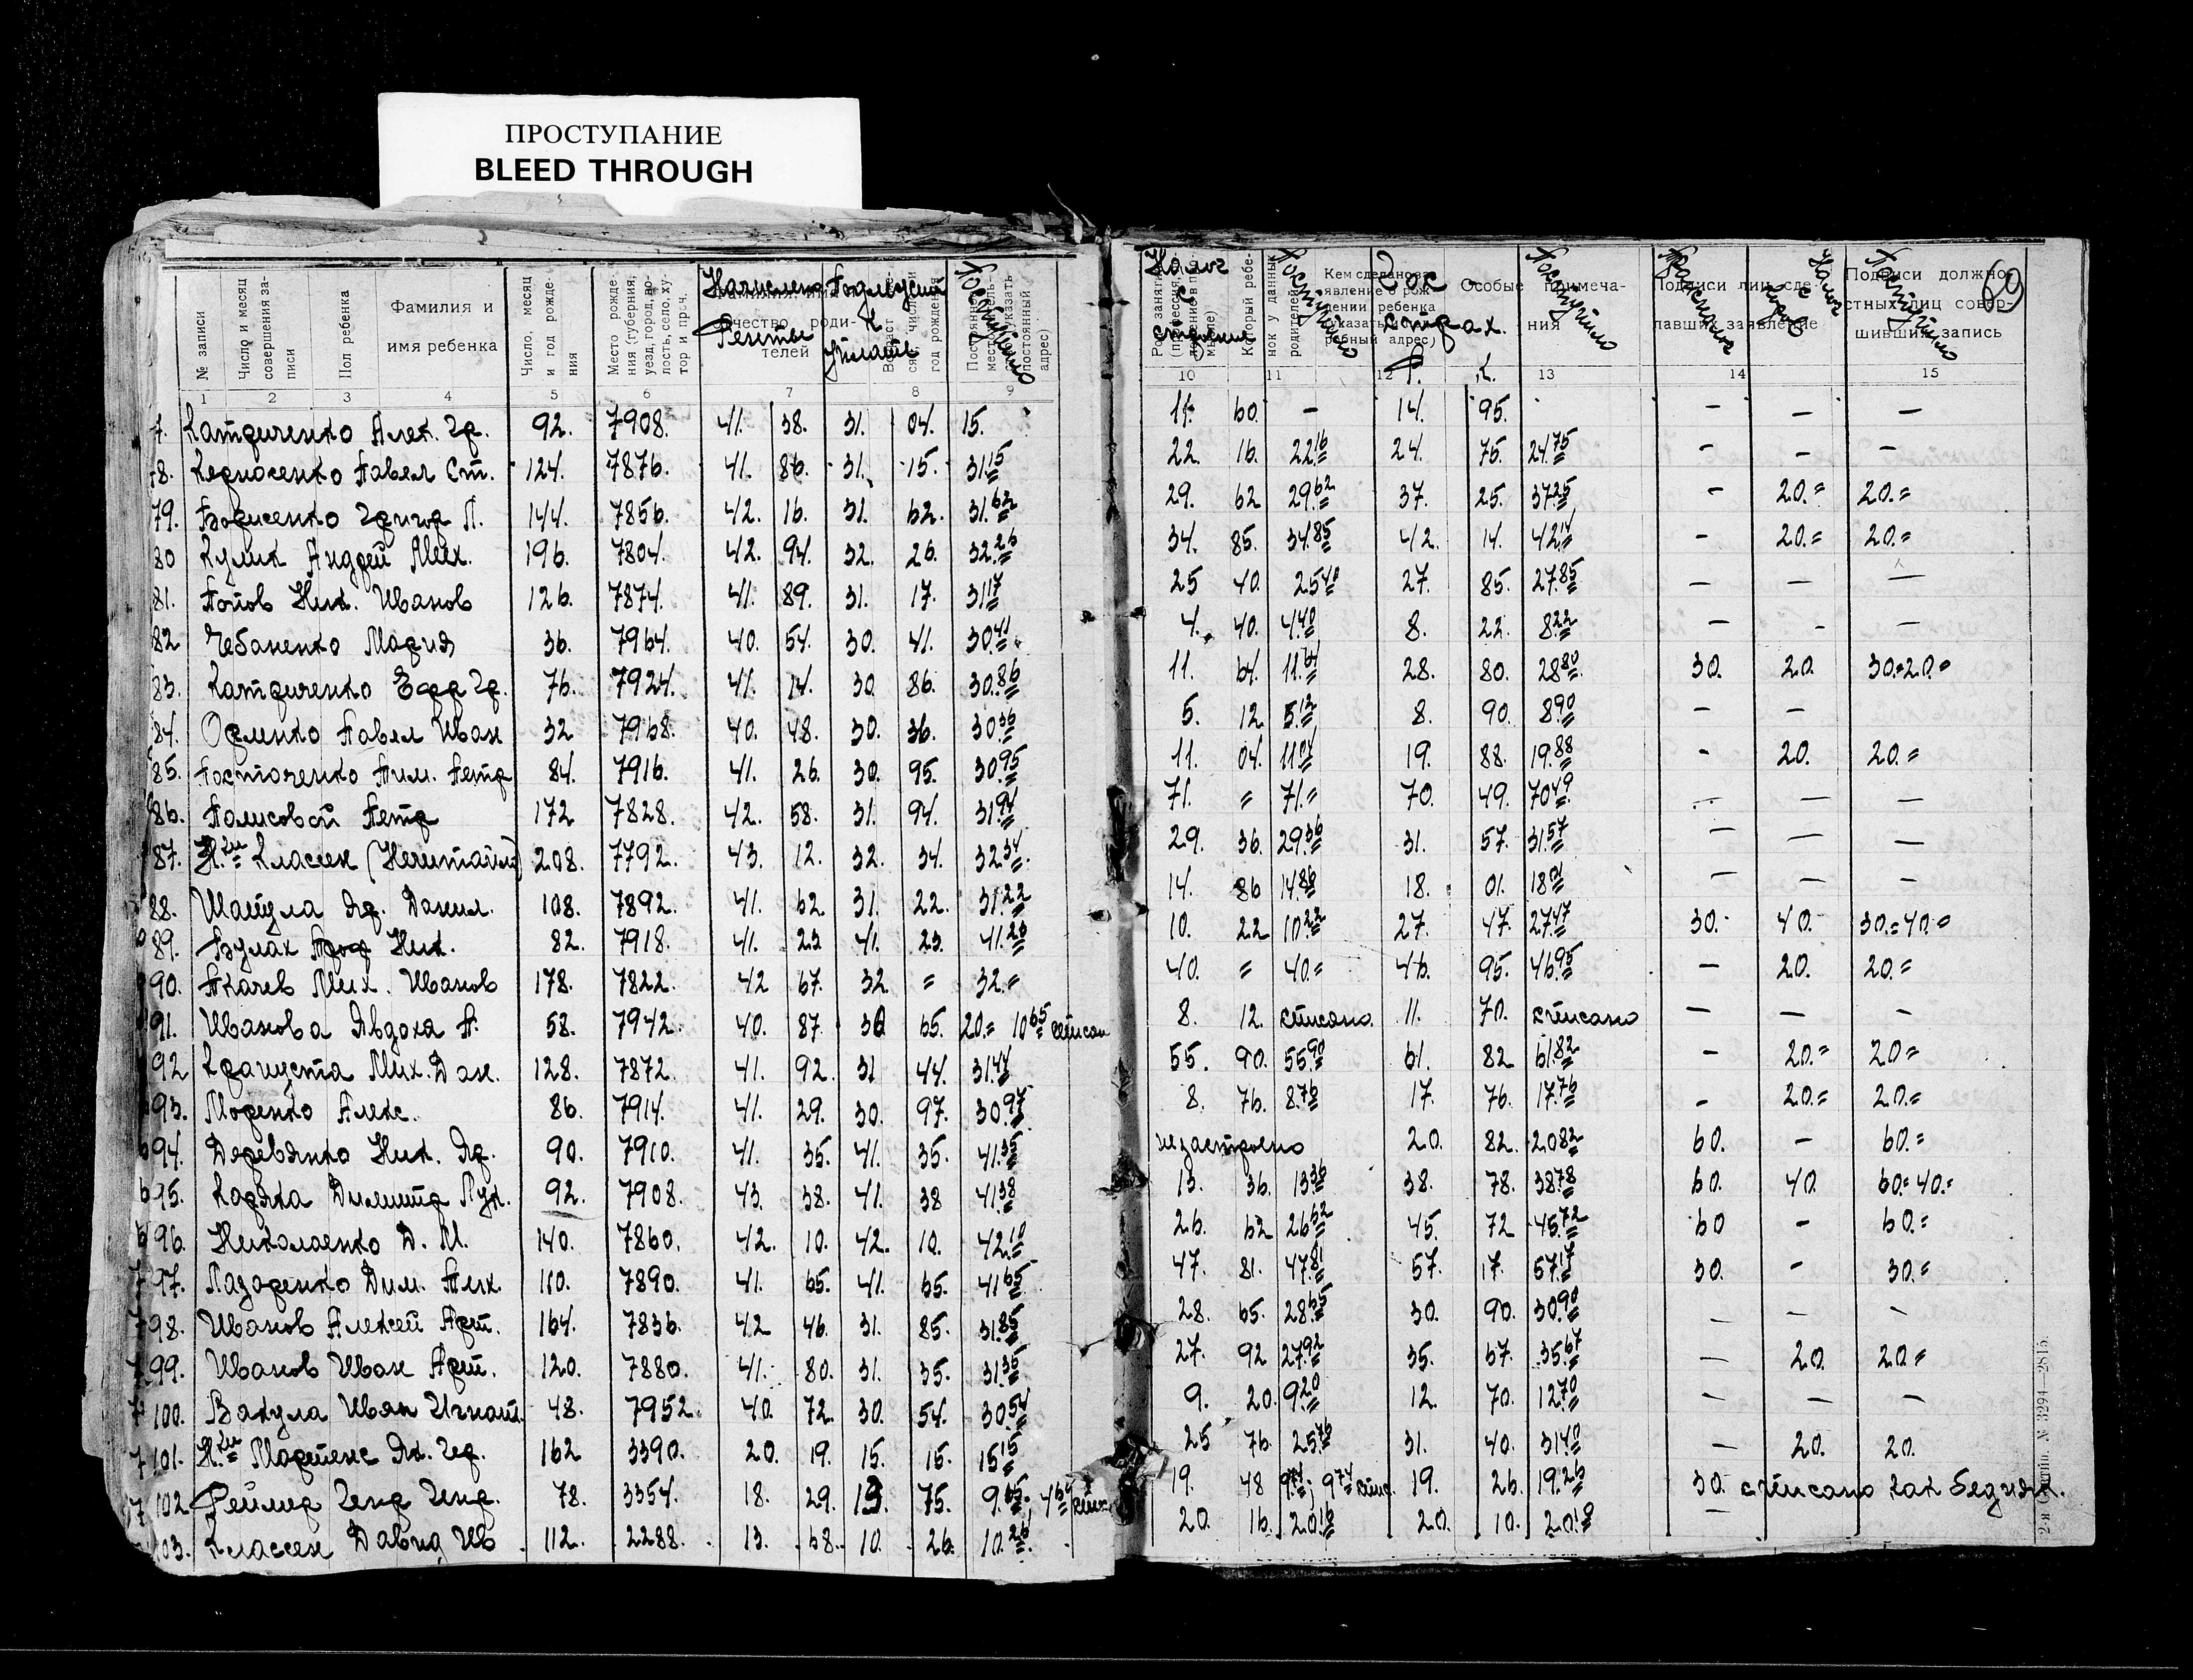 ПРОСТУПАНИЕ
BLEED THROUGH
№ записи
Число и месяц совершения записи
Пол ребенка
Фамилия и имя ребенка
Число, месяц и год рождения
Начислено Ренты
Подлежит к уплате
Поступило
Налог с строение
Поступило
Гос страх.
Р. к.
Поступило
Налог с
Поступило
69
1 2 3 4 5 6 7 8 9 10 11 12 13 14 15
7. Катриченко Алек. Гр. 92. 7908. 41. 38. 31. 04. 15. 11. 60. – 14. 95. – – –
78. Керносенко Павел Ст. 124. 7876. 41. 86. 31. 15. 31.15 22. 16. 22.16 24. 75. 24.75 – – –
79. Борисенко Григор П. 144. 7856. 42. 16. 31. 62. 31.62 29. 62 29.62 37. 25. 37.25 – 20.= 20.=
80 Кулик Андрей Мих. 196. 7804. 42. 94. 32. 26. 32.26 34. 85. 34.85 42. 14. 42.14 – 20.= 20.=
81. Попов Ник. Иванов 126. 7874. 41. 89. 31. 17. 31.17 25 40. 25.40 27. 85. 27.85 – – –
82 Чебаненко Мария 36. 7964. 40. 54. 30. 41. 30.41 4. 40. 4.40 8. 22. 8.22 – - –
83. Катриченко Ефр Гр. 76. 7924. 41. 14. 30. 86. 30.86 11. 64. 11.64 28. 80. 28.80 30. 20. 30.=20.=
84. Орленко Павел Иван 32 7968. 40. 48. 30. 36. 30.36 5. 12 5.12 8. 90. 8.90 – –
85. Костюченко Тим. Петр 84. 7916. 41. 26. 30. 95. 30.95 11. 04. 11.04 19. 88. 19.88 - 20. 20.=
86. Полисовой Петр 172 7828. 42. 58. 31. 94. 31.94 71. = 71.= 70. 49. 70.49 – – –
87. Н.ки Классен 208. 7792. 43. 12. 32. 34. 32.34 29. 36. 29.36 31. 57. 31.57 – – –
88. Шащула Яр. Данил. 108. 7892. 41. 62. 31. 22. 31.22 14. 86 14.86 18. 01. 18.01 – – –
89. Булах Проф Ник. 82. 7918. 41. 23. 41. 23. 41.23 10. 22 10.22 27. 47. 27.47 30. 40. 30.=40.=
90. Ткачев Мих. Иванов 178. 7822. 42 67. 32. = 32.= 40. = 40.= 46. 95. 46.95 – 20. 20.=
91. Иванова Явдоха П. 58. 7942. 40. 87. 30 65. 20.= 10.65 списан 8. 12. списано. 11. 70. списано – – –
92 Крачуста Мих. Дан. 128. 7872. 41. 92. 31 44. 31.44 55. 90. 55.90 61. 82 61.82 – 20.= 20=
93. Моренко Алекс. 86. 7914. 41. 29. 30. 97. 30.97 8. 76. 8.76 17. 76. 17.76 – 20.= 20.=
94. Деревянко Ник. Яр. 90. 7910. 41. 35. 41. 35. 41.35 незастроено 20. 82. 20.82 60. – 60.=
95. Коряка Димитр Лук. 92. 7908. 43. 38. 41. 38 41.38 13. 36. 13.36 38. 78. 38.78 60. 40. 60.=40.=
96. Николаенко Д. М. 140. 7860. 42. 10. 42. 10. 42.10 26. 62 26.62 45. 72 45.72 60 – 60.=
97. Лазаренко Дим. Тих. 110. 7890. 41. 65. 41. 65. 41.65 47. 81. 47.81 57. 17. 57.17 30. – 30.=
98. Иванов Алексей Арт. 164. 7836. 42 46. 31. 85. 31.85 28. 65. 28.65 30. 90. 30.90 – –
99. Иванов Иван Арт. 120. 7880. 41. 80. 31. 35. 31.35 27. 92 27.92 35. 67. 35.67 – 20. 20=
100. Вакула Иван Игнат. 48. 7952. 40. 72. 30. 54. 30.54 9. 20. 9.20 12. 70. 12.70 – – –
101. Н.ки Мартенс Як. Гер. 162 3390. 20. 19. 15. 15. 15.15 25 76. 25.76 31. 40. 31.40 – 20. 20.
102 Реймер Генр Генр. 78. 3354. 18. 29. 13. 75. 19. 48 9.74; 9.74 19. 26. 19.26 30. списано как бедняк.
103. Классен Давид Ив 112. 2288. 13. 68. 10. 26. 10.26 20. 16. 20.16 20. 10. 20.10 –